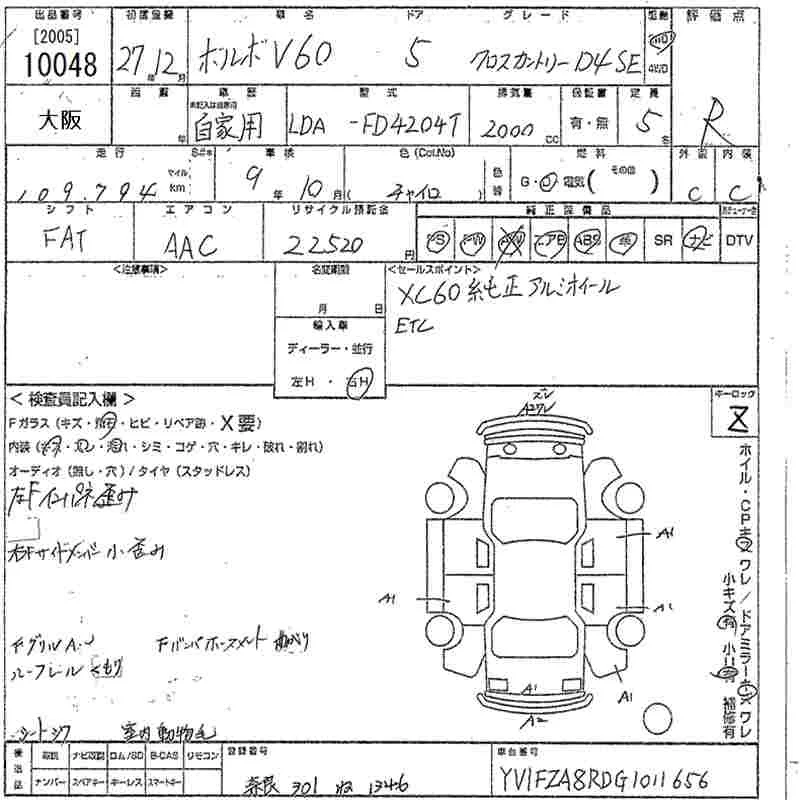 出品番号 初度登録 車名 ドア グレード 駆動 評価点
[2005]
10048 27年12月 ボルボV60 5 クロスカントリーD4 SE 4WD R
大阪 車歴 型式 排気量 保証書 定員
未記入は自家用
年 自家用 LDA -FD4204T 2000cc 有・無 5名
走行 車検 色(Col.No) 色替 燃料 外装 内装
109,794 マイル km 9年10月 (チャイロ) G・D 電気( その他 ) C C
シフト エアコン リサイクル預託金 純正装備品
FAT AAC 22520円 PS PW AW エアB ABS 革 SR ナビ DTV
<注意事項> 名変期限 <セールスポイント>
月 日 XC60純正アルミホイール
輸入車 ETC
ディーラー・並行
左H・右H
<検査員記入欄> キーロック
Fガラス(キズ・飛石・ヒビ・リペア跡・X要) Z
内装(キズ・スレ・汚れ・シミ・コゲ・穴・キレ・破れ・割れ)
オーディオ(無し・穴)/タイヤ(スタッドレス)
左Fインパネ歪み
右Fサイドメンバー小歪み
FグリルA Fバンパホースメント曲がり
ルーフレールくもり
シートシワ 室内動物毛
ズレ
A2ワレ
A1
A1
A1
A1
A1
A2
ホイル・CPキズワレ/ドアミラーキズワレ
小キズ有 小凹有 補修有
後送品 取説 ナビ取説 ロム/SD B-CAS リモコン 登録番号 車台番号
ナンバー スペアキー キーレス スマートキー 奈良 301 ね 1346 YV1FZA8RDG1011656